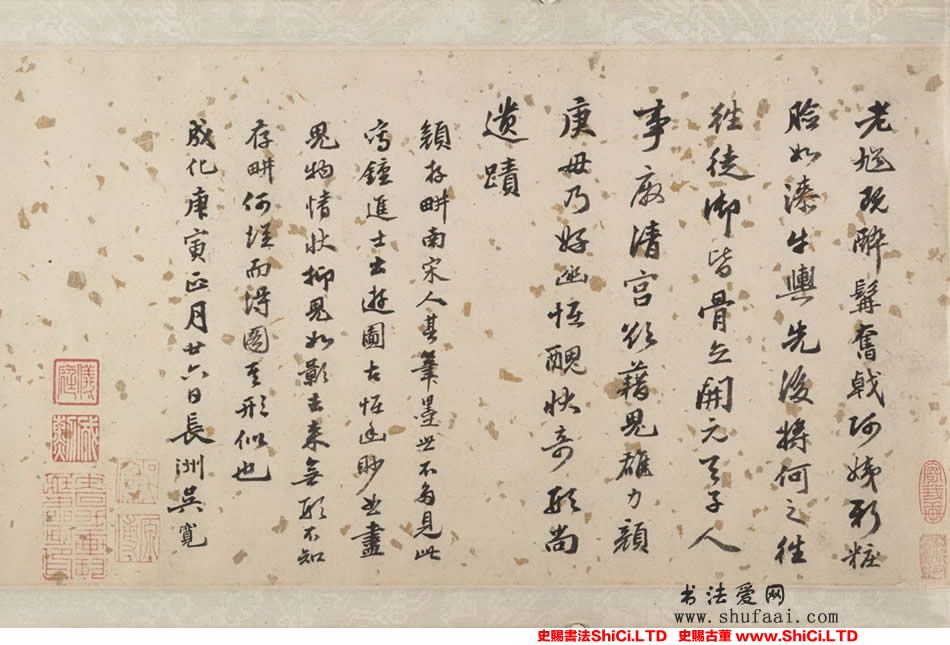 老馗既醉髯奮戟阿姨新粧
臉如漆牛輿先後将何之往
往徒御皆骨立開元天子人
事廢清宫欲藉鬼雄力顔
庚毋乃好幽怪醜狀奇形尚
遺蹟
顔存畊南宋人其筆墨世不多見此
寫鍾進士出遊圖古怪幽眇曲盡
鬼物情狀抑鬼如影去来無形不知
存畊何從而得圖其形似也
成化庚寅正月廿六日長洲吳寬
书法爱网
www.shufaai.com
史賜書法ShiCi.LTD 史賜古董 www.ShiCi.LTD